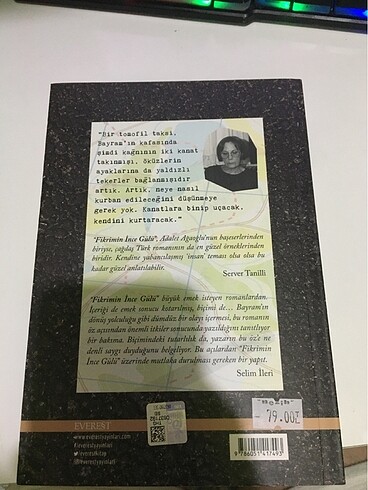 "Bir tomofil taksi,
Bayram'ın kafasında
şimdi kağnının iki kanat
takınmışı, öküzlerin
ayaklarına da yaldızlı
tekerler bağlanmışıdır
artık. Artık, neye nasıl
kurban edileceğini düşünmeye
gerek yok. Kanatlara binip uçacak,
kendini kurtaracak."
"Fikrimin İnce Gülü", Adalet Ağaoğlu'nun başeserlerinden
biriyse, çağdaş Türk romanının da en güzel örneklerinden
biridir. Kendine yabancılaşmış 'insan' teması olsa olsa bu
kadar güzel anlatılabilir.
Server Tanilli
"Fikrimin İnce Gülü" büyük emek isteyen romanlardan.
İçeriği de emek sonucu kotarılmış, biçimi de... Bayram'ın
dönüş yolculuğu gibi dümdüz bir olayı içermesi, bu romanın
öz açısından önemli itkiler sonucunda yazıldığını tanıtlıyor
bir bakıma. Biçimindeki tutarlılık da, yazarın bu öz'e ne
denli saygı duyduğunu belgeliyor. Bu açılardan "Fikrimin
İnce Gülü" üzerinde mutlaka durulması gereken bir yapıt.
Selim İleri
79.00
EVEREST
www.everestyayinlari.com
everestyayinlari
everestkitap
everestyayinlari
9 786051 417493